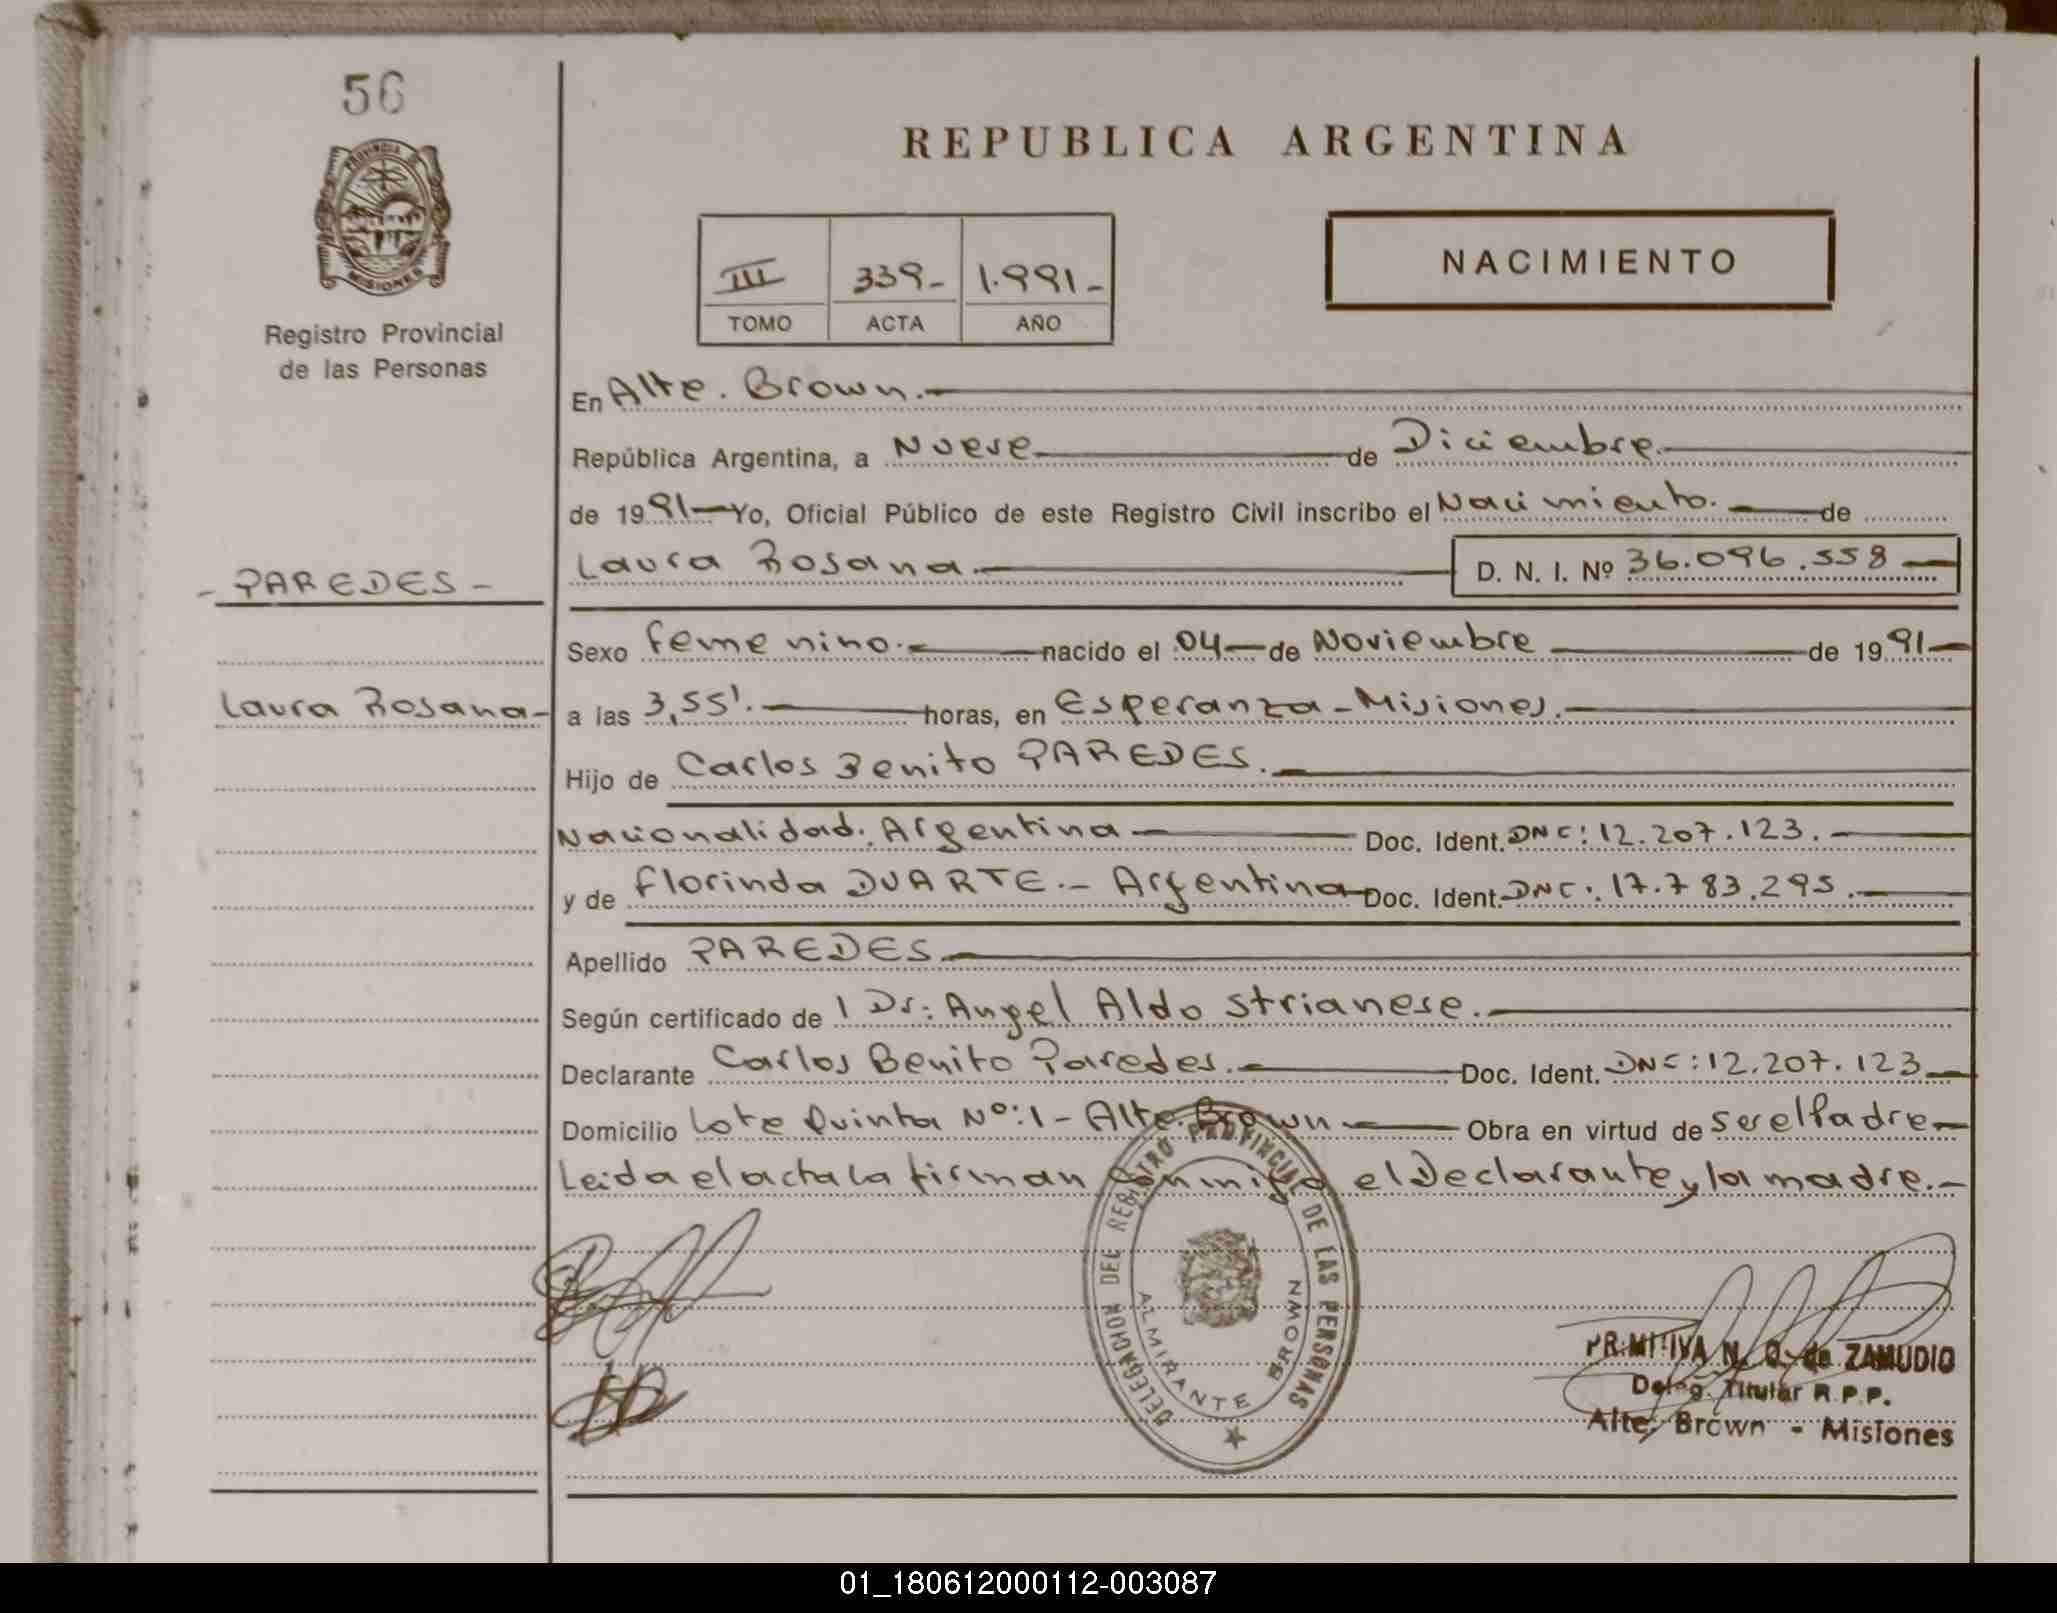 56
PROVINCIA
MISIONES
Registro Provincial
de las Personas
REPUBLICA ARGENTINA
III 339- 1.991-
TOMO ACTA AÑO
NACIMIENTO
En Alte. Brown.-
República Argentina, a Nueve de Diciembre.-
de 1991- Yo, Oficial Público de este Registro Civil inscribo el Nacimiento.- de
- PAREDES -
Laura Rosana.- D. N. I. Nº 36.096.558-
Sexo femenino.- nacido el 04- de Noviembre de 1991-
Laura Rosana-
a las 3,55'.- horas, en Esperanza-Misiones.-
Hijo de Carlos Benito PAREDES.-
Nacionalidad. Argentina- Doc. Ident. DNC: 12.207.123.-
y de florinda DUARTE.- Argentina- Doc. Ident. DNC: 17.783.295.-
Apellido PAREDES-
Según certificado de l Dr: Angel Aldo Strianese.-
Declarante Carlos Benito Paredes.- Doc. Ident. DNC: 12.207.123-
Domicilio Lote Quinta Nº:1- Alte. Brown- Obra en virtud de ser el Padre-
Leida el acta la firman conmigo el Declarante y la madre.-
DELEGACION DEL REGISTRO PROVINCIAL DE LAS PERSONAS
ALMIRANTE BROWN
PRIMITIVA N. O. de ZAMUDIO
Deleg. Titular R.P.P.
Alte. Brown - Misiones
01_180612000112-003087